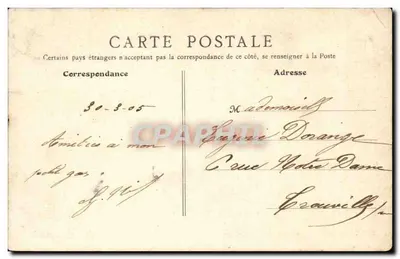 CARTE POSTALE
Certains pays étrangers n'acceptant pas la correspondance de ce côté, se renseigner à la Poste
Correspondance
Adresse
30-3-05
Mademoiselle
Dorange
à mon
6 rue Notre Dame
Trouville